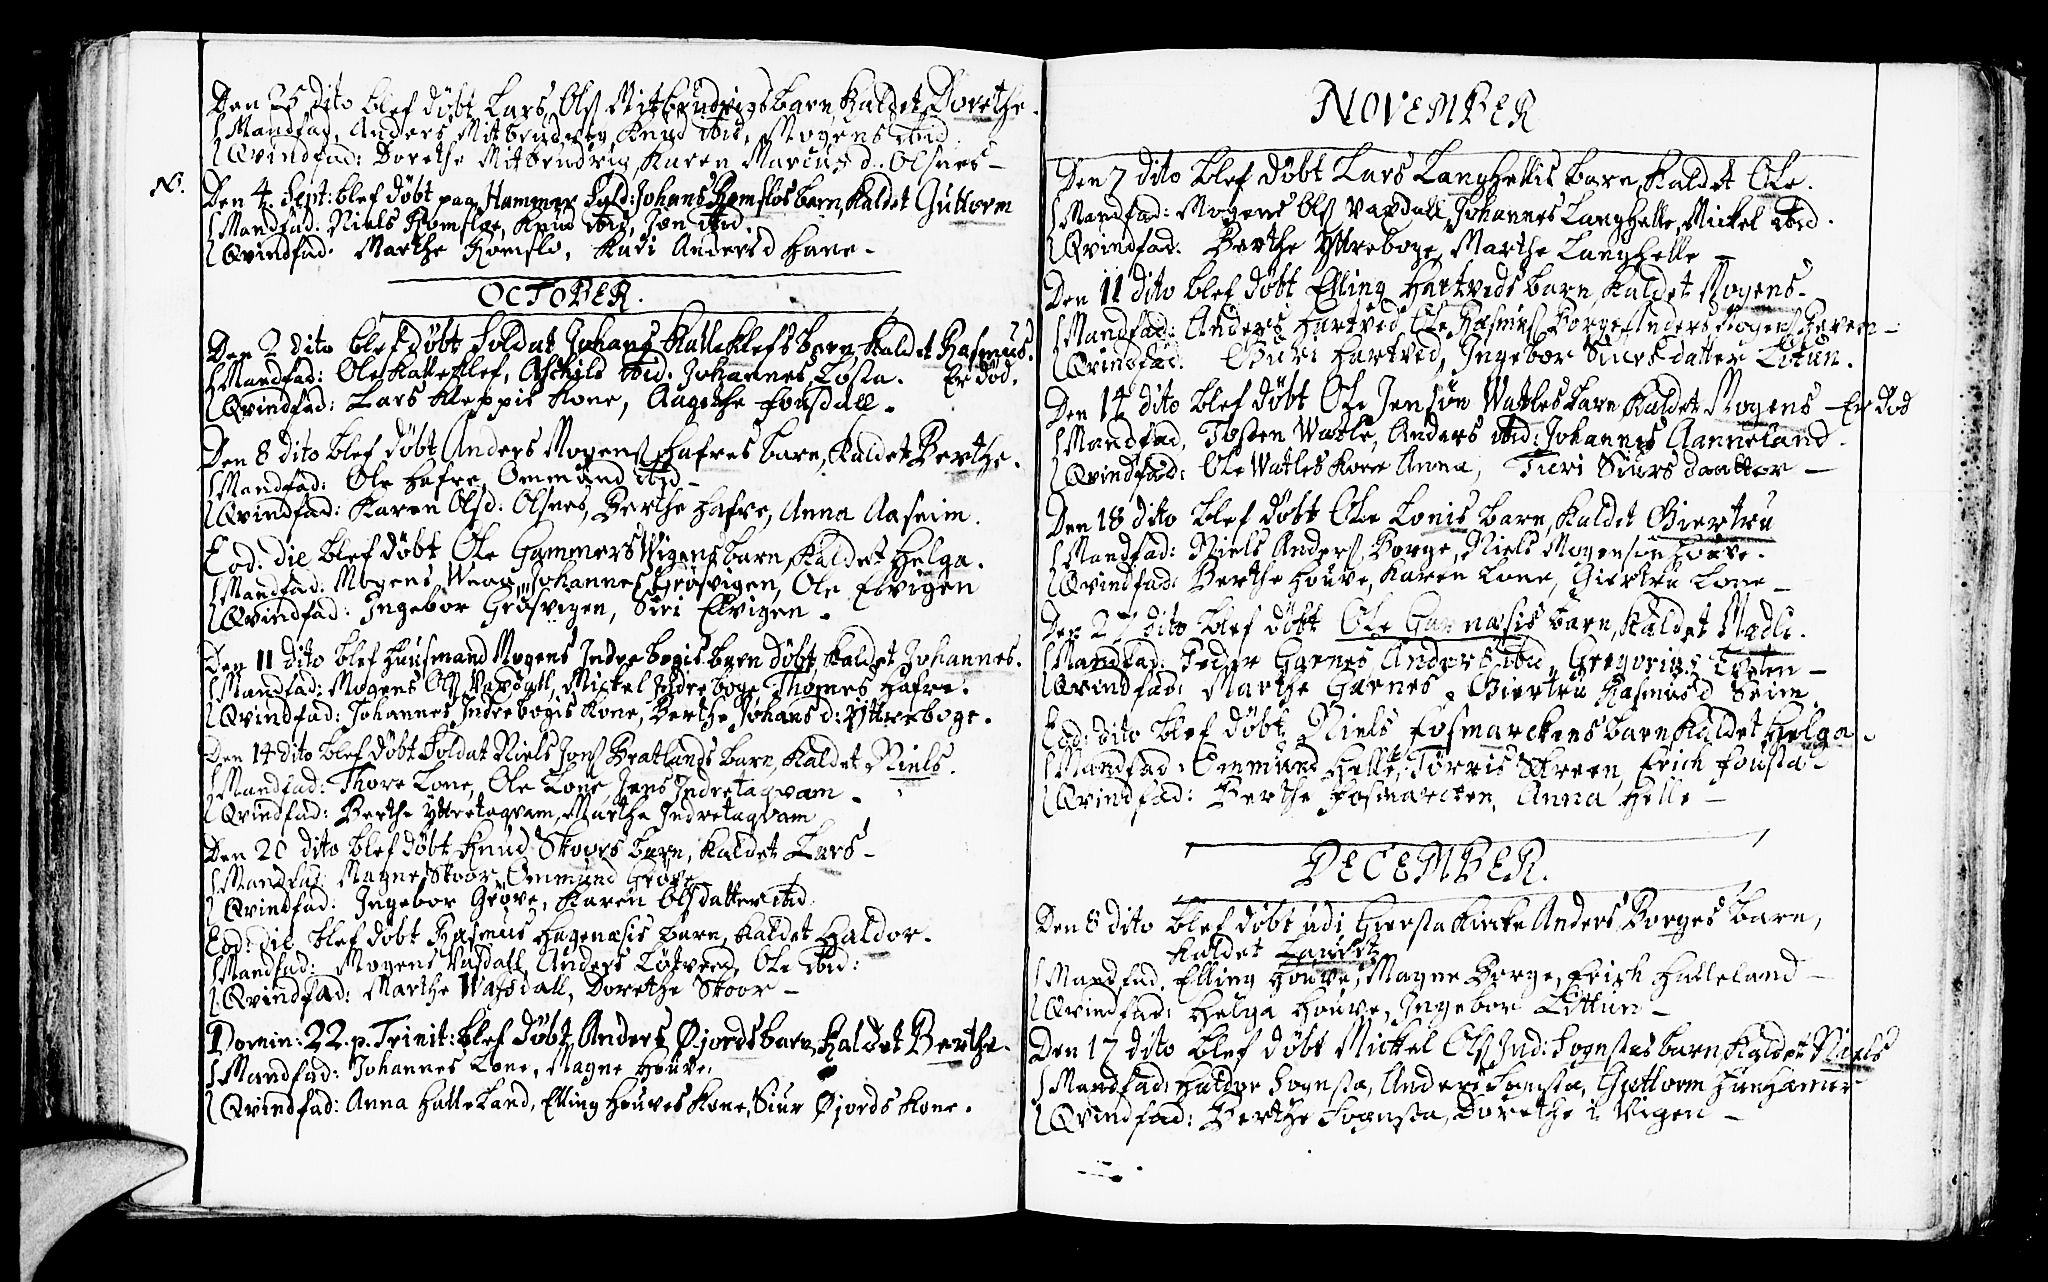 Den 25 dito blef døbt Lars Olß Mitbrudvigs barn, kaldet Dorethe.
Mandfad. Anders Mitbrudvig, Knud ibid, Mogens ibid
Qvindfad: Dorethe Mitbrudvig, Karen Marcusd. Olsnes -
N.
Den 4. Sept: blef døbt paa Hammer Sold: Johans Romslos barn, kaldet Guttorm
Mandfad: Niels Romsloe, Knud ibid, Jon ibid.
Qvindfad: Marthe Romslo, Kari Andersd Hane.
OCTOBER.
Den 2 dito blef døbt Soldat Johans Kalleklefs barn, kaldet Rasmus.
Mandfad: Ole Kalleklef, Aschils ibid. Johannes Losta. Er død.
Qvindfad: Lars Kleppis Kone, Aagethe Fousdall.
Den 8 dito blef døbt Anders Mogenß Hafres barn, kaldet Berthe.
Mandfad: Ole Hafre, Ommund ibid -
Qvindfad: Karen Olsd: Olsnes, Berthe Hafre, Anna Aaseim.
Eod: die blef døbt Ole Gammersvigens barn, kaldet Helga.
Mandfad: Mogens Johannes Grøsvigen, Ole Elvigen
Qvindfad: Ingebor Grøsvigen, Siri Elvigen.
Den 11 dito blef Huusmand Mogens Indrebogis barn døbt kaldet Johannes.
Mandfad: Mogens Olß Waxdall, Mickel Indreboge Thomes Hafre.
Qvindfad: Johannes Indrebogis Kone, Berthe Johansd: Yttreboge.
Den 14 dito blef døbt Soldat Niels Jonß Bratlands barn, kaldet Niels.
Mandfad: Thore Lone, Ole Lone, Jens Indretaqvam.
Qvindfad: Berthe Yttretaqvam, Marthe Indretaqvam
Den 20 dito blef døbt Knud Skoors barn, kaldet Lars -
Mandfad: Magne Skoor, Ommund Grøve
Qvindfad: Ingebor Grøve, Karen Olsdatter ibid.
Eod: die blef døbt Rasmus Hagenæsis barn, kaldet Haldor.
Mandfad: Mogens Vasdall, Anders Løtveed, Ole ibid:
Qvindfad: Marthe Waxdall, Dorethe Skoor -
Domin: 22. p. Trinit: blef døbt Anders Øjords barn, kaldet Berthe.
Mandfad: Johannes Lone, Magne Houve.
Qvindfad: Anna Halleland, Elling Houves Kone, Siur Øjords Kone.
NOVEMBER
Den 7 dito blef døbt Lars Langhellis barn, kaldet Ole.
Mandfad: Mogens Olß Vaxdall, Johannes Langhelle, Mickel ibid.
Qvindfad: Berthe Yttreboge, Marthe Langhelle -
Den 11 dito blef døbt Elling Hartveds barn, kaldet Mogens.
Mandfad: Anders Hartved, Ole Rasmuß Borge, Anders Mogenß
Qvindfad: Guri Hartved, Ingebor Siursdatter Littun.
Den 14 dito blef døbt Ole Jensøn Watles barn kaldet Mogens - Er Død
Mandfad. Tosten Watle, Anders ibid: Johannes Aanneland.
Qvindfad: Ole Watles Kone Anna, Turi Siursdaatter -
Den 18 dito blef døbt Ole Lonis barn, kaldet Giertru
Mandfad: Niels Anderß Borge, Niels Mogensøn Houve.
Qvindfad: Berthe Houve, Karen Lone, Giertru Lone -
Den 27 dito blef døbt Ole Garnæsis barn, kaldet Madli.
Mandfad: Peder Garnes Anders ibid, Gregorius -
Qvindfad: Marthe Garnes, Giertru Rasmusd Seim
Eod: dito blef døbt Niels Fosmarckens barn kaldet Helga.
Mandfad: Ommund Helle, Tørris Streen, Erich Fousta -
Qvindfad: Berthe Fosmarcken, Anna Helle -
DECEMBER.
Den 8 dito blef døbt udi Giersta Kircke Anders Borges barn,
kaldet Lauritz
Mandfad. Elling Houve, Magne Borge, Erich Halleland -
Qvindfad: Helga Houve, Ingebor Littun -
Den 17 dito blef døbt Mickel Olß Ind: Sognstas barn, kaldet Niels
Mandfad: Haldor Sognsta, Anders Sognsta, Guthorm
Qvindfad: Berthe Sognsta, Dorethe i Vigen -